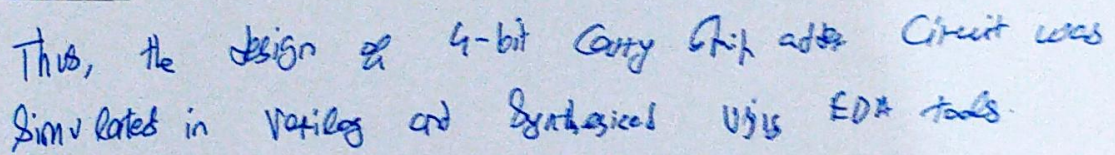 Thus, the design of 4-bit Carry Skip adder Circuit was
Simulated in Verilog and Synthesized Using EDA tools.